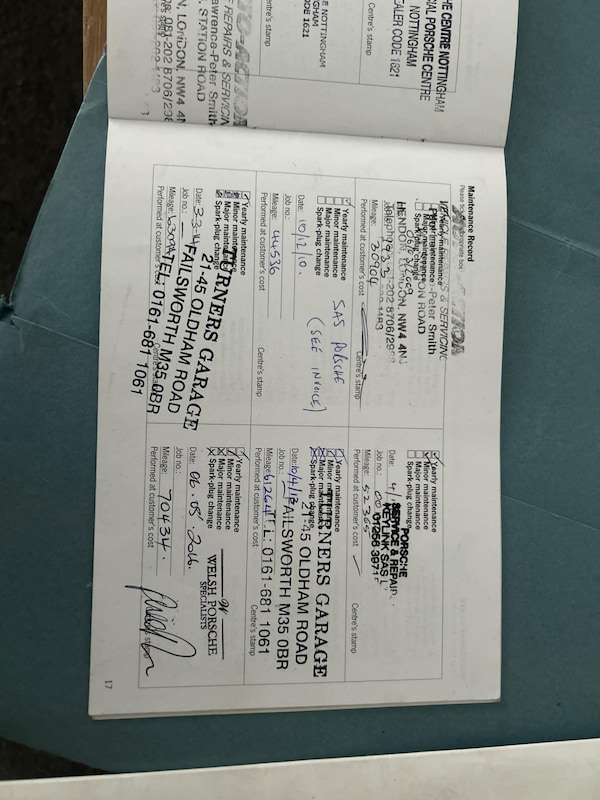 E CENTRE NOTTINGHAM
IAL PORSCHE CENTRE
NOTTINGHAM
ALER CODE 1621
Centre's stamp
E NOTTINGHAM
INGHAM
CODE 1621
Centre's stamp
REPAIRS & SERVICIN
awrence-Peter Smith
STATION ROAD
N, LONDON, NW4 4
Maintenance Record
Peter Smith
ON ROAD
HENDON, LONDON, NW4 4N
Mileage: 30904
Performed at customer's cost
Centre's stamp
Yearly maintenance
Minor maintenance
Major maintenance
Spark-plug change
Date:
Job no.:
PORSCHE
SERVICE & REPAIR
KEYLINK SAS L
01256 3971
Mileage: 52365
Performed at customer's cost
Centre's stamp
Yearly maintenance
Minor maintenance
Major maintenance
Spark-plug change
Date: 10/12/10.
Job no.:
Mileage: 44536
Performed at customer's cost
SAS PORSCHE
(SEE INVOICE)
Centre's stamp
Yearly maintenance
Minor maintenance
Major maintenance
Spark-plug change
Date: 10/4/13
Job no.:
Mileage: 61264
Performed at customer's cost
TURNERS GARAGE
21-45 OLDHAM ROAD
FAILSWORTH M35 0BR
TEL: 0161-681 1061
Centre's stamp
Yearly maintenance
Minor maintenance
Major maintenance
Spark-plug change
Date:
Job no.:
Mileage:
Performed at customer's cost
TURNERS GARAGE
21-45 OLDHAM ROAD
FAILSWORTH M35 0BR
TEL: 0161-681 1061
Centre's stamp
Yearly maintenance
Minor maintenance
Major maintenance
Spark-plug change
Date: 06.05.2016.
Job no.:
Mileage: 70434.
Performed at customer's cost
WELSH PORSCHE
SPECIALISTS
17